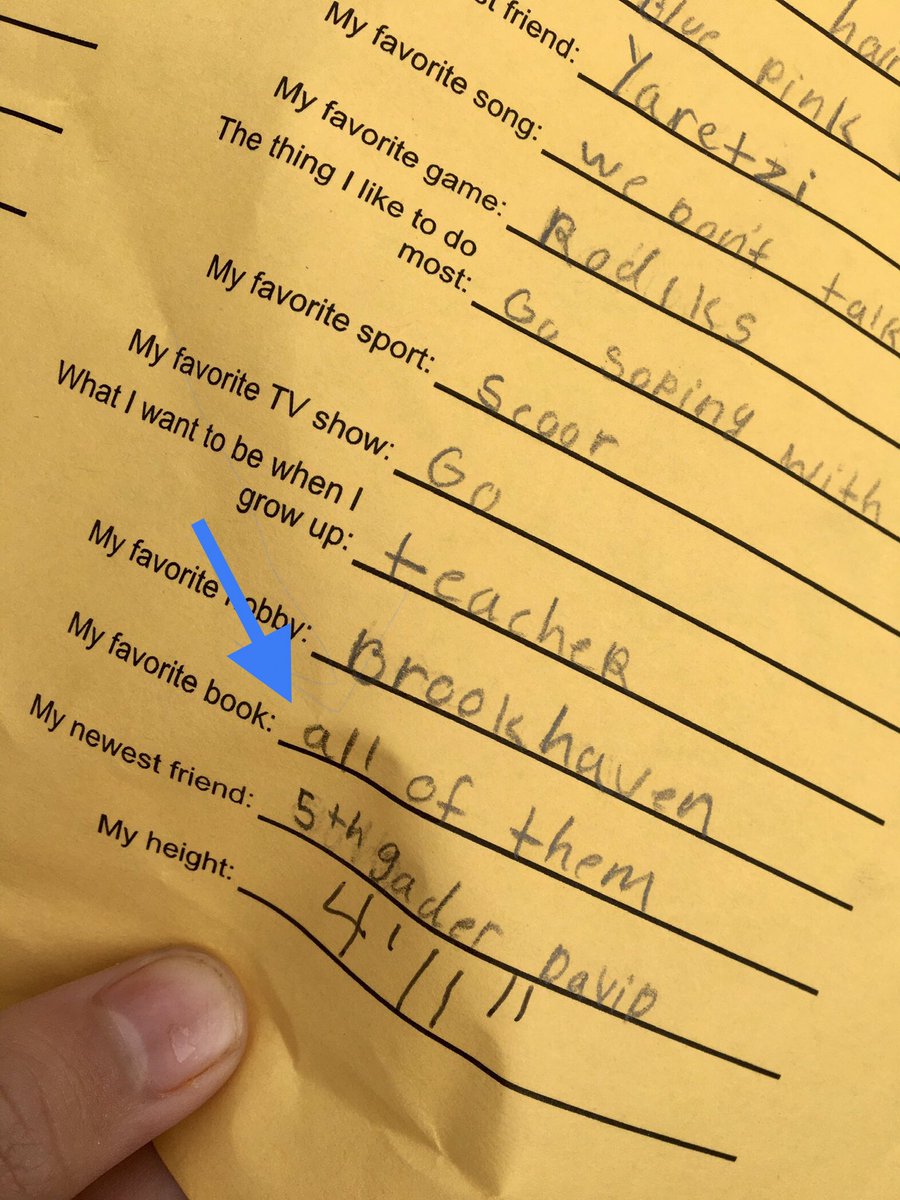 hair
Blue pink
st friend: Yaretzi
My favorite song: we Don't talk
My favorite game: Rodlks
The thing I like to do
most: Go soping with
My favorite sport: Scoor
My favorite TV show: Go
What I want to be when I
grow up: teacheR
My favorite hobby: Brookhaven
My favorite book: all of them
My newest friend: 5th gader DaviD
My height: 4'11"